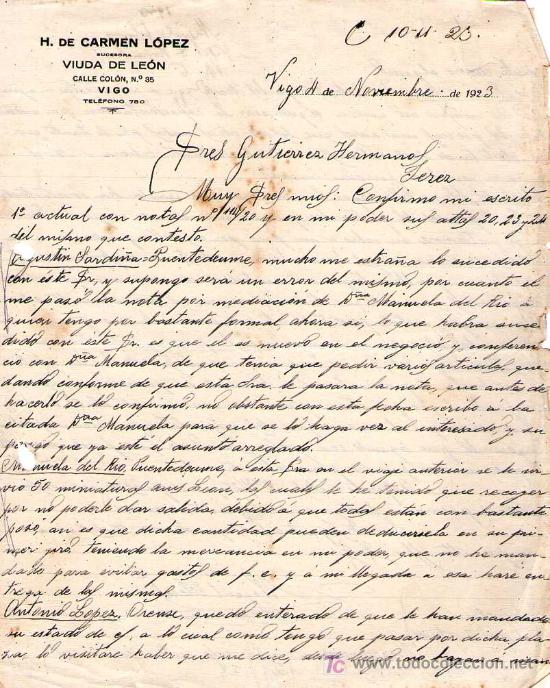 H. DE CARMEN LÓPEZ
SUCESORA
VIUDA DE LEÓN
CALLE COLÓN, N.º 35
VIGO
TELÉFONO 780
C 10-11-23.
Vigo 4 de Noviembre de 1923
Sres Gutierrez Hermanos
Jerez
Muy Sres mios: Confirmo mi escrito
1º actual con notas nº 20 y en mi poder sus attas 20, 23 y
del mismo que contesto.
Agustin Sardina-Puentedeume, mucho me estraña lo sucedido
con éste Sr, y supongo será un error del mismo, por cuanto el
me pasó la nota por mediación de Dña Manuela del Rio á
quien tengo por bastante formal ahora si, lo que habra suce
dido con este Sr. es que el es nuevo en el negocio y, conferen
cio con Dña Manuela, de que tenia que pedir varios articulos, que
dando conforme de que esta Sra. le pasara la nota, que antes de
hacerlo se lo confirmo, no obstante con esta fecha escribo a la
citada Dña Manuela para que se lo haga ver al interesado, y su
pongo que ya esté el asunto arreglado.
Manuela del Rio, Puentedeume, a esta Sra en el viaje anterior se le sir
vio 50 miniaturas los cuales le he tenido que recoger
por no poderle dar salida, debido a que todos estan con bastante
poso, asi es que dicha cantidad pueden deducersela en su pri
mer giro, teniendo la mercancia en mi poder, que no he man
dado para evitar gastos de f. c. y á mi llegada a esa hare en
trega de los mismos.
Antonio Lopez, Orense, quedo enterado de que le han mandado
su estado de c/, a lo cual como tengo que pasar por dicha pla
za, lo visitare haber que me dice, desde luego no hagan
tc www.todocoleccion.net